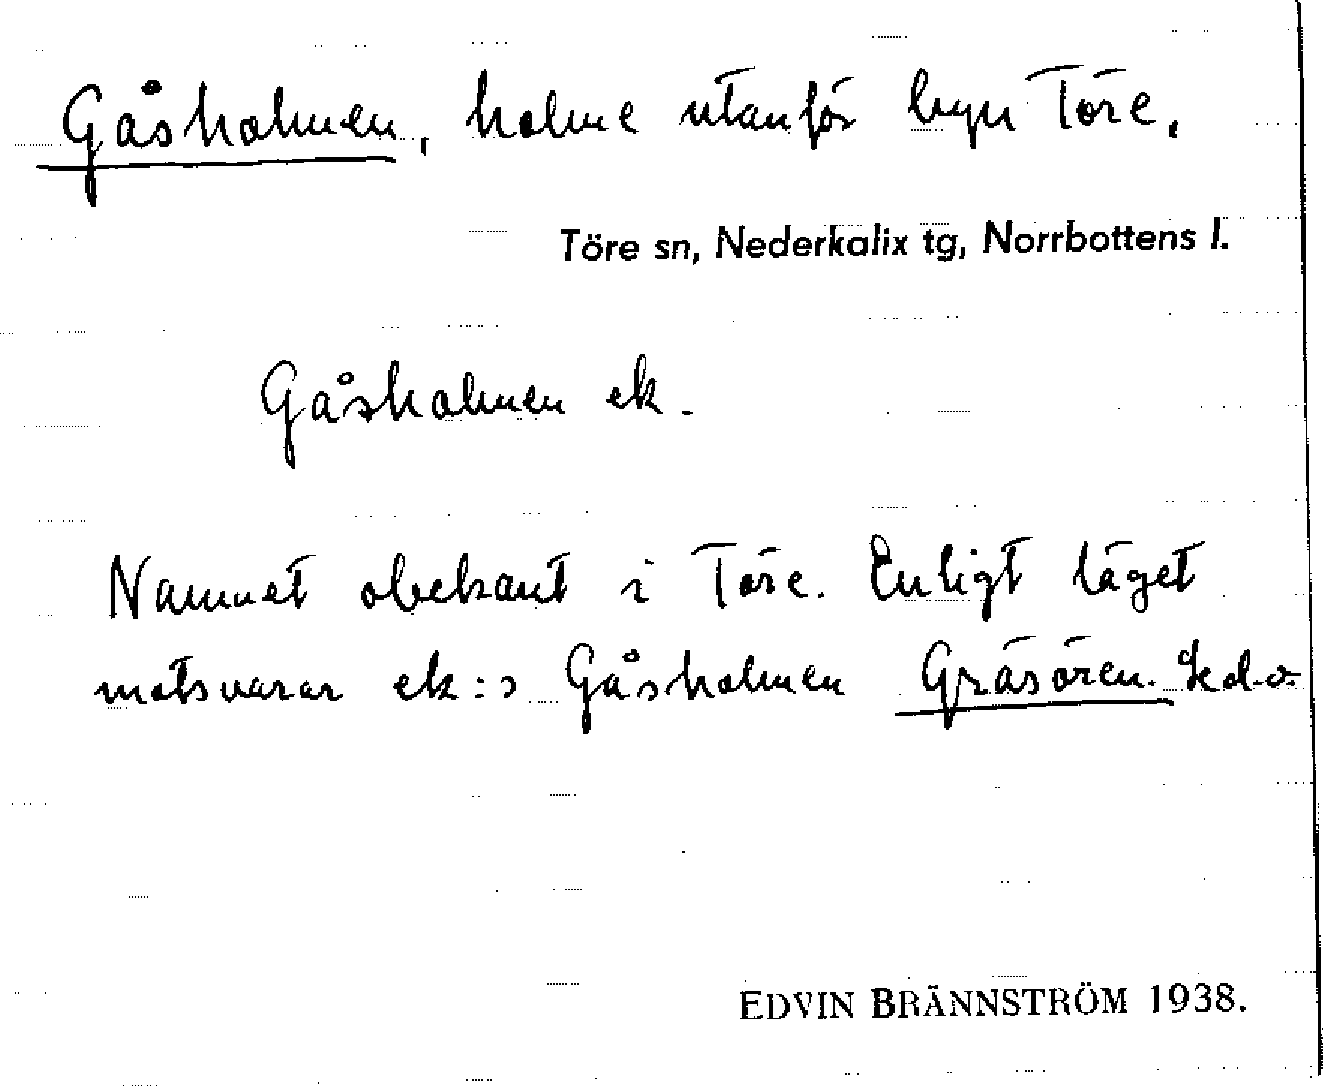 Gåsholmen, holme utanför byn Töre.
Töre sn, Nederkalix tg, Norrbottens l.
Gåsholmen ek.
Namnet obekant i Töre. Enligt läget
motsvarar ek:s Gåsholmen Gräsören. Se d.o.
EDVIN BRÄNNSTRÖM 1938.